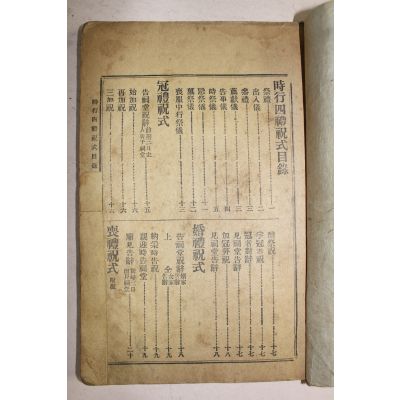 時行四禮祝式目錄
祭禮 一
出入儀 二
參禮 二
薦獻儀 三
告事儀 四
時祭儀 五
忌祭儀 一一
墓祭儀 一二
喪服中行祭儀 一三
冠禮祝式
告祠堂祝辭 十五
始加祝 十六
再加祝 十六
三加祝 十六
醮祭祝 十七
字冠者祝 十七
冠者對辭 十七
見祠堂告辭 十七
加冠筓祝 十七
見祠堂告辭 十八
婚禮祝式
告祠堂祝辭 十八
上仝 十九
納采時告祝 十九
親迎時告祠堂 十九
廟見告辭 二十
喪禮祝式
時行四禮祝式目錄